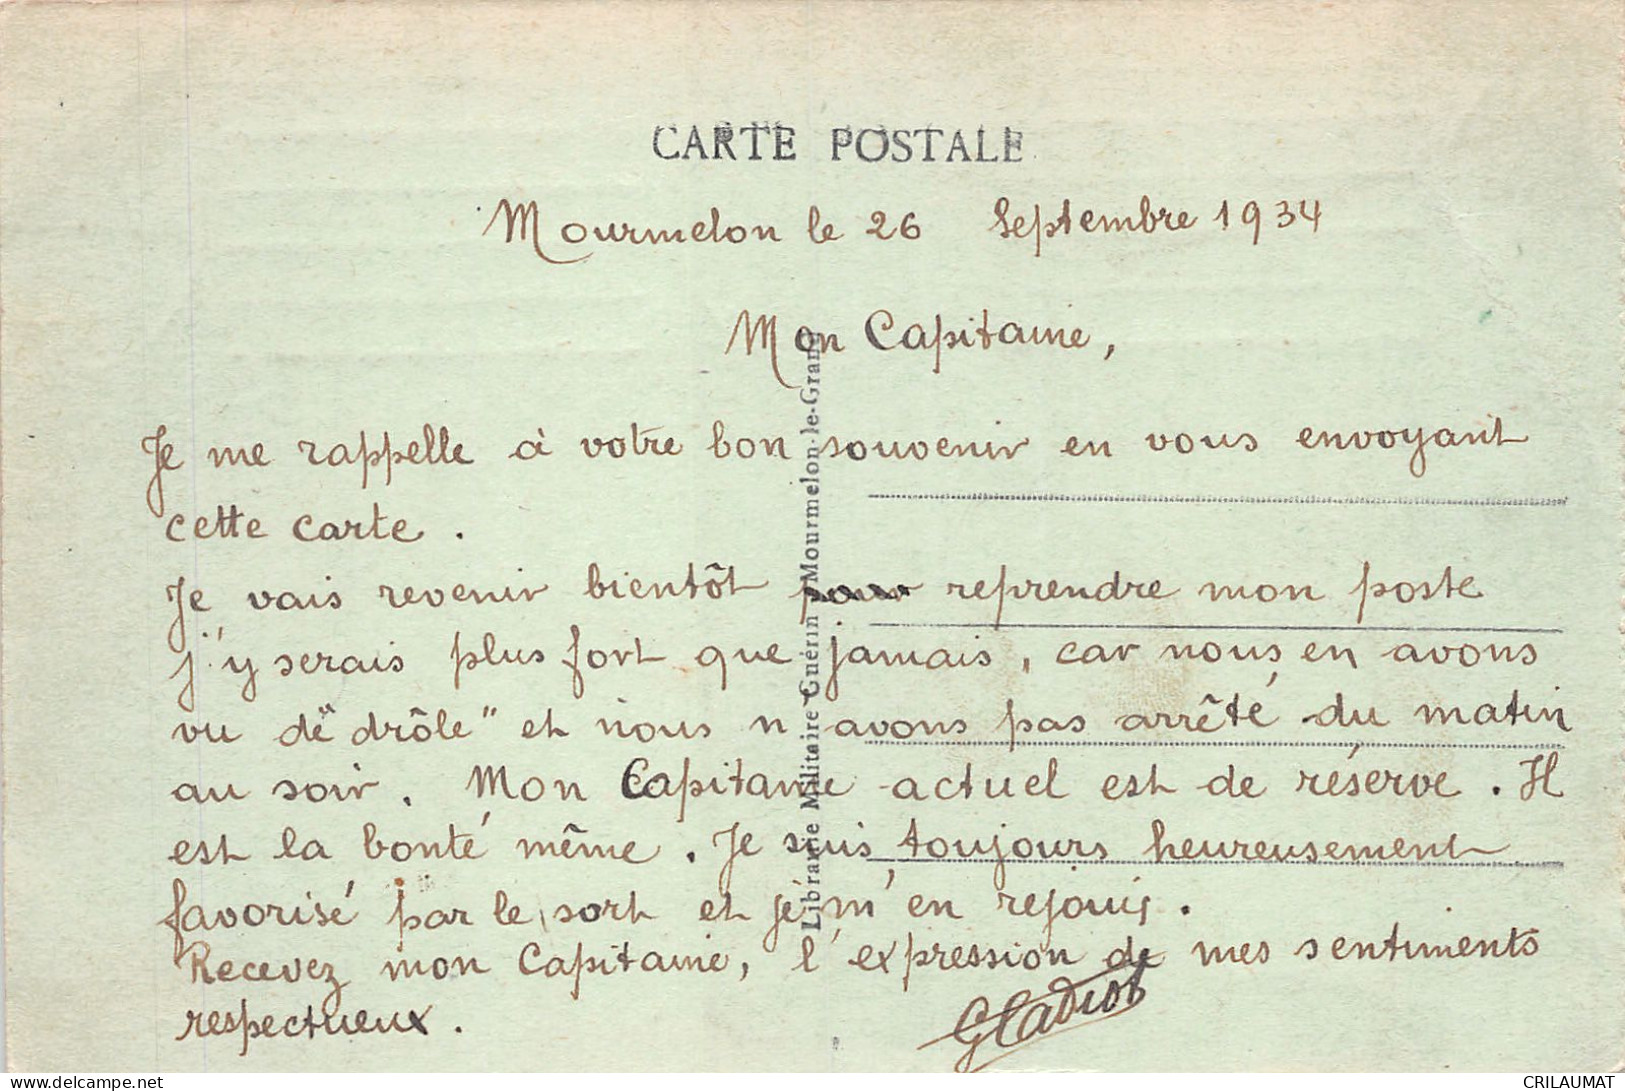 CARTE POSTALE
Mourmelon le 26 Septembre 1934
Mon Capitaine,
Je me rappelle à votre bon souvenir en vous envoyant
cette carte.
Je vais revenir bientôt pour reprendre mon poste
j'y serais plus fort que jamais, car nous en avons
vu de "drôle" et nous n'avons pas arrêté du matin
au soir. Mon Capitaine actuel est de réserve. Il
est la bonté même. Je suis toujours heureusement
favorisé par le sort et je m'en rejouis.
Recevez mon Capitaine, l'expression de mes sentiments
respectueux.
Librairie Militaire Guérin Mourmelon-le-Grand
CRILAUMAT